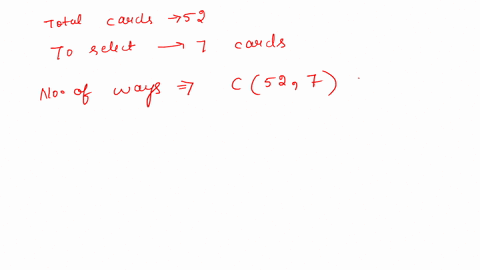 Total cards → 52
To select → 7 cards
No. of ways ⇒ C(52, 7)